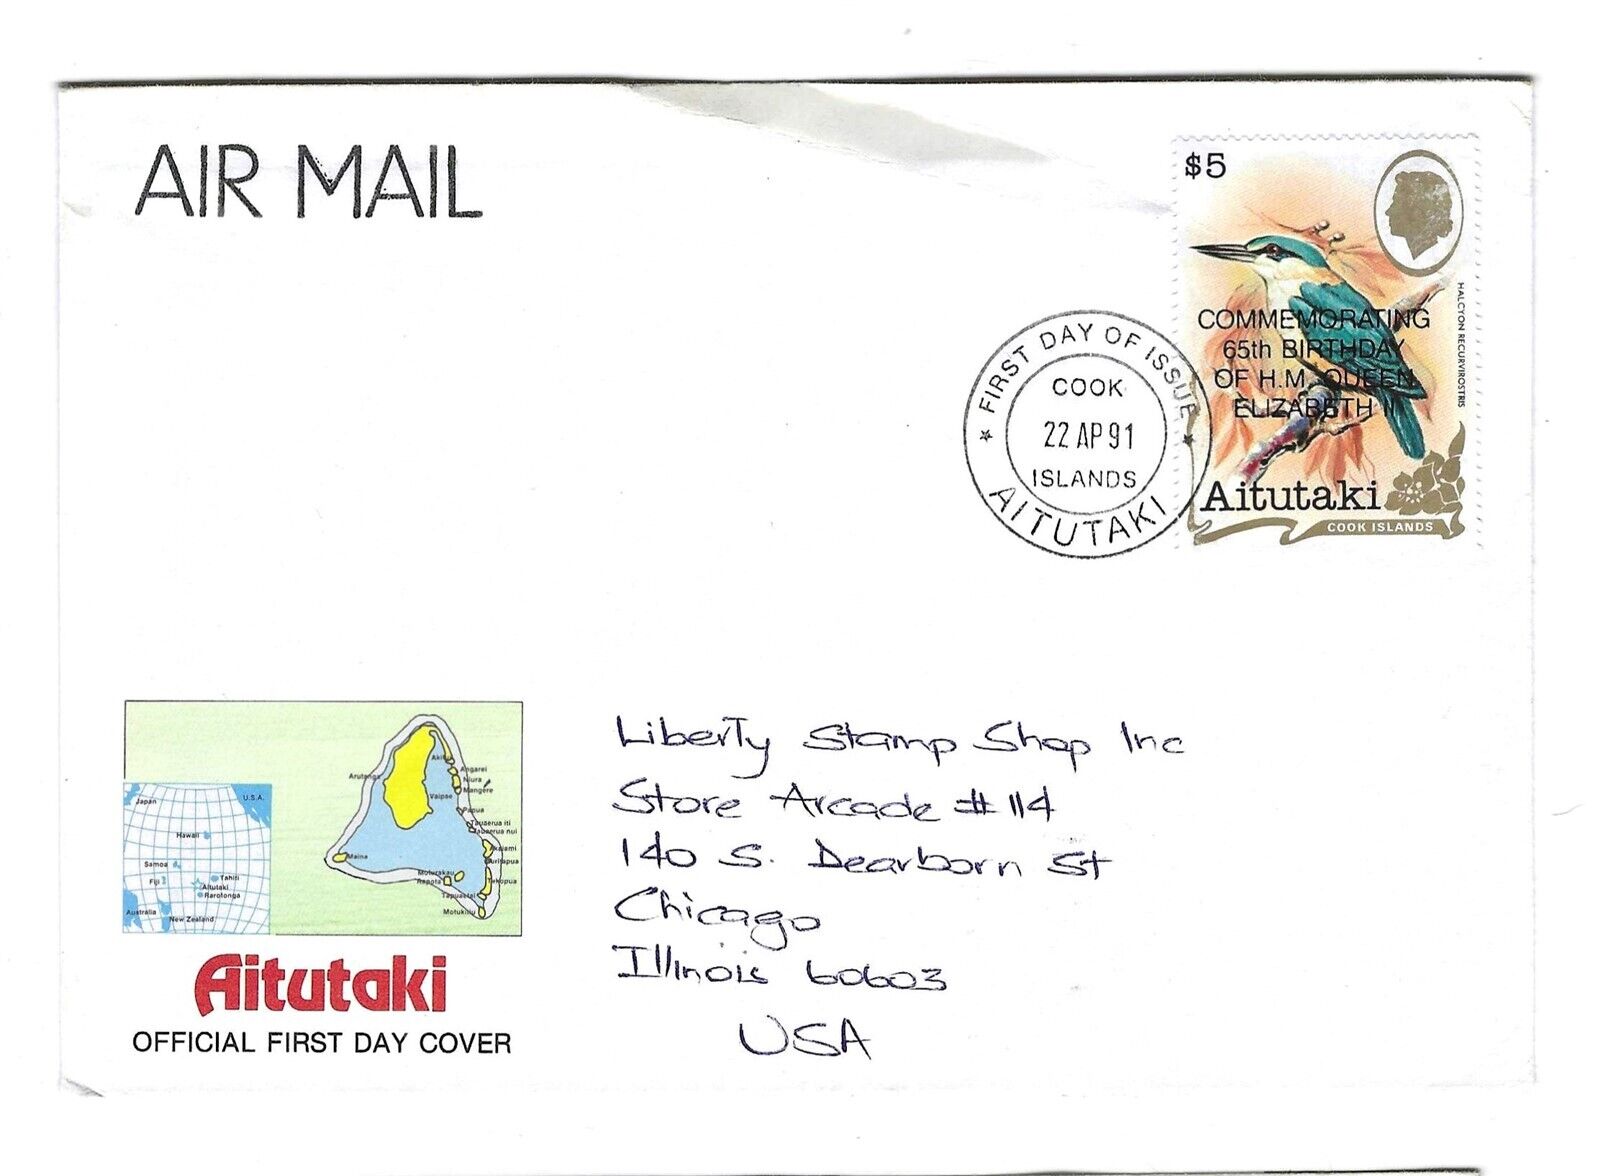 AIR MAIL
$5
HALCYON RECURVIROSTRIS
COMMEMORATING
65th BIRTHDAY
OF H.M. QUEEN
ELIZABETH II
Aitutaki
COOK ISLANDS
★ FIRST DAY OF ISSUE ★
COOK
22 AP 91
ISLANDS
AITUTAKI
Liberty Stamp Shop Inc
Store Arcade #114
140 S. Dearborn St
Chicago
Illinois 60603
USA
Japan
U.S.A.
Hawaii
Samoa
Fiji
Tahiti
Aitutaki
Rarotonga
Australia
New Zealand
Arutanga
Angarei
Niura
Mangere
Vaipae
Papua
Tauaerua iti
Tauaerua nui
Akaiami
Maina
Moturakau
Rapota
Tekopua
Tapuaetai
Motukitiu
Aitutaki
OFFICIAL FIRST DAY COVER